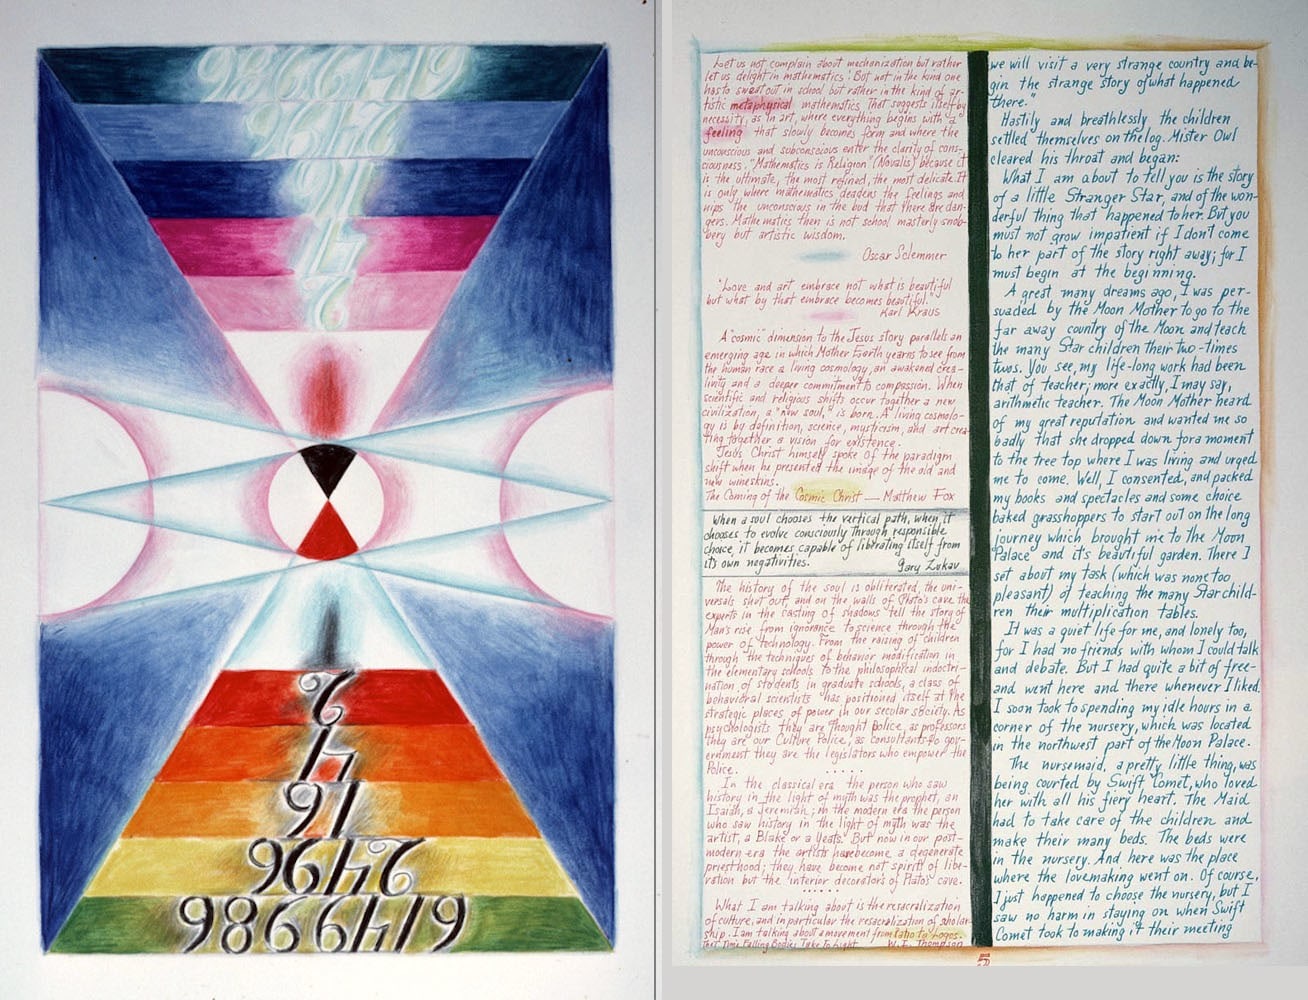 Let us not complain about mechanization but rather
let us delight in mathematics! But not in the kind one
has to sweat out in school but rather in the kind of ar-
tistic metaphysical mathematics that suggests itself by
necessity, as in art, where everything begins with a
feeling that slowly becomes form and where the
unconscious and subconscious enter the clarity of cons-
ciousness. "Mathematics is Religion" (Novalis) because it
is the ultimate, the most refined, the most delicate. It
is only where mathematics deadens the feelings and
nips the unconscious in the bud that there are dan-
gers. Mathematics then is not school masterly snob-
bery but artistic wisdom.
Oscar Sclemmer
"Love and art embrace not what is beautiful
but what by that embrace becomes beautiful."
Karl Kraus
A "cosmic" dimension to the Jesus story parallels an
emerging age in which Mother Earth yearns to see from
the human race a living cosmology, an awakened crea-
tivity and a deeper commitment to compassion. When
scientific and religious shifts occur together a new
civilization, a "new soul," is born. A living cosmolo-
gy is by definition, science, mysticism, and art crea-
ting together a vision for existence.
Jesus Christ himself spoke of the paradigm
shift when he presented the image of the old and
new wineskins.
The Coming of the Cosmic Christ — Matthew Fox
When a soul chooses the vertical path, when it
chooses to evolve consciously through responsible
choice, it becomes capable of liberating itself from
its own negativities. Gary Zukav
The history of the soul is obliterated, the uni-
versals shut out, and on the walls of Plato's cave the
experts in the casting of shadows tell the story of
Man's rise from ignorance to science through the
power of technology. From the raising of children
through the techniques of behavior modification in
the elementary schools to the philosophical indoctri-
nation of students in graduate schools, a class of
behavioral scientists has positioned itself at the
strategic places of power in our secular society. As
psychologists they are Thought Police, as professors
they are our Culture Police, as consultants to gov-
ernment they are the legislators who empower the
Police.
.....
In the classical era the person who saw
history in the light of myth was the prophet, an
Isaiah, a Jeremiah; in the modern era the person
who saw history in the light of myth was the
artist, a Blake or a Yeats. But now in our post-
modern era the artists have become a degenerate
priesthood; they have become not spirits of libe-
ration but the interior decorators of Plato's cave.
......
What I am talking about is the resacralization
of culture, and in particular the resacralization of scholar-
ship. I am talking about a movement from ratio to Logos.
The Time Falling Bodies Take To Light W.I. Thompson
we will visit a very strange country and be-
gin the strange story of what happened
there."
Hastily and breathlessly the children
settled themselves on the log. Mister Owl
cleared his throat and began:
What I am about to tell you is the story
of a little Stranger Star, and of the won-
derful thing that happened to her. But you
must not grow impatient if I don't come
to her part of the story right away; for I
must begin at the beginning.
A great many dreams ago, I was per-
suaded by the Moon Mother to go to the
far away country of the Moon and teach
the many Star children their two-times
twos. You see, my life-long work had been
that of teacher; more exactly, I may say,
arithmetic teacher. The Moon Mother heard
of my great reputation and wanted me so
badly that she dropped down for a moment
to the tree top where I was living and urged
me to come. Well, I consented, and packed
my books and spectacles and some choice
baked grasshoppers to start out on the long
journey which brought me to the Moon
Palace and it's beautiful garden. There I
set about my task (which was none too
pleasant) of teaching the many Star child-
ren their multiplication tables.
It was a quiet life for me, and lonely too,
for I had no friends with whom I could talk
and debate. But I had quite a bit of free-
and went here and there whenever I liked.
I soon took to spending my idle hours in a
corner of the nursery, which was located
in the northwest part of the Moon Palace.
The nursemaid, a pretty little thing, was
being courted by Swift Comet, who loved
her with all his fiery heart. The Maid
had to take care of the children and
make their many beds. The beds were
in the nursery. And here was the place
where the lovemaking went on. Of course,
I just happened to choose the nursery, but I
saw no harm in staying on when Swift
Comet took to making it their meeting